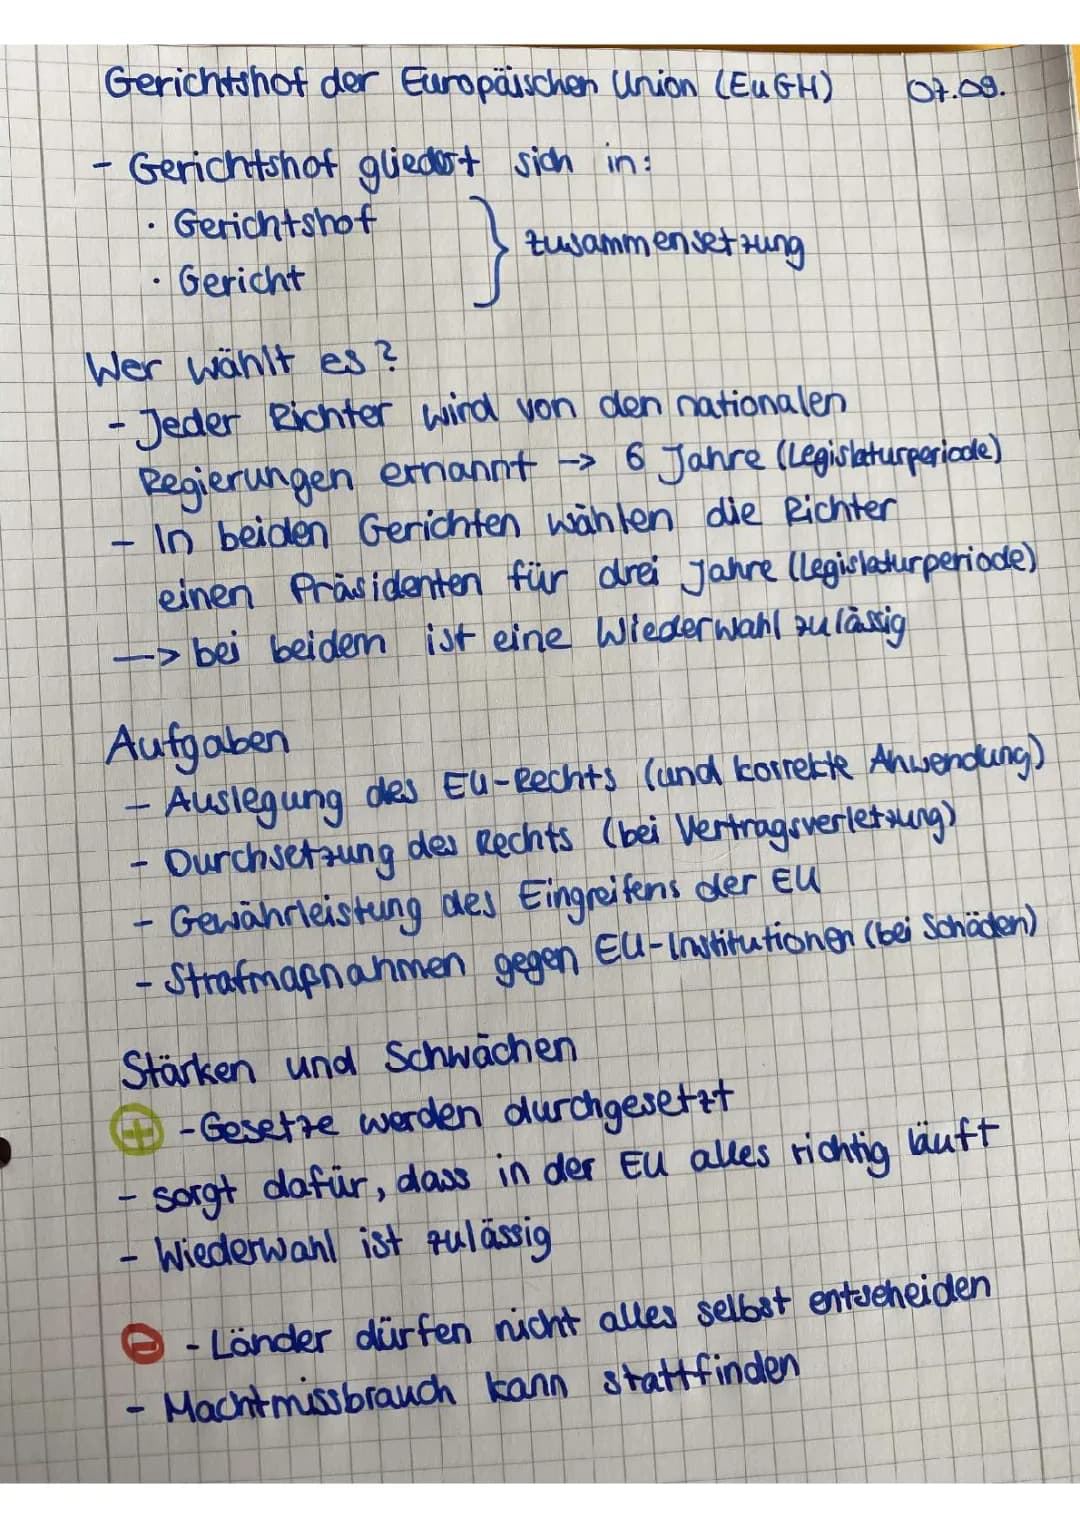 Gerichtshof der Europäischen Union (EuGH) 07.09.
- Gerichtshof gliedert sich in:
· Gerichtshof
· Gericht
} Zusammensetzung
Wer wählt es?
- Jeder Richter wird von den nationalen
Regierungen ernannt -> 6 Jahre (Legislaturperiode)
- In beiden Gerichten wählen die Richter
einen Präsidenten für drei Jahre (Legislaturperiode)
-> bei beidem ist eine Wiederwahl zulässig
Aufgaben
- Auslegung des EU-Rechts (und korrekte Anwendung)
- Durchsetzung des Rechts (bei Vertragsverletzung)
- Gewährleistung des Eingreifens der EU
- Strafmaßnahmen gegen EU-Institutionen (bei Schäden)
Stärken und Schwächen
+ - Gesetze werden durchgesetzt
- sorgt dafür, dass in der EU alles richtig läuft
- Wiederwahl ist zulässig
- - Länder dürfen nicht alles selbst entscheiden
- Machtmissbrauch kann stattfinden